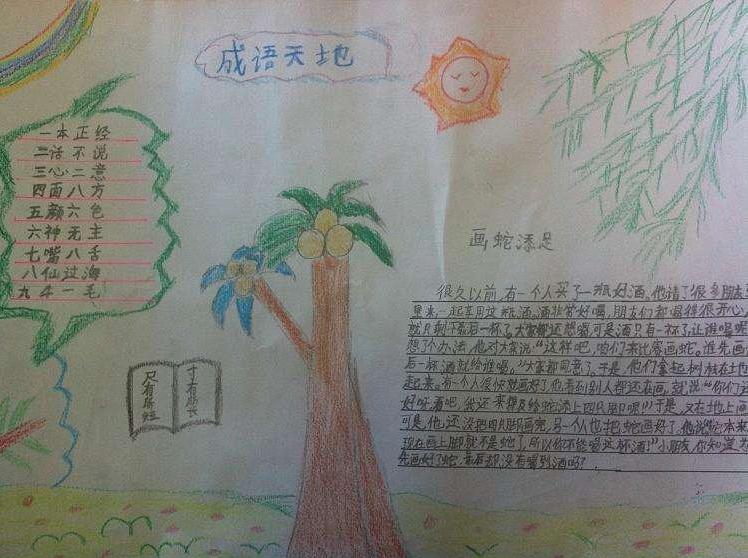 成语天地
一本正经
二话不说
三心二意
四面八方
五颜六色
六神无主
七嘴八舌
八仙过海
九牛一毛
尺有所短
寸有所长
画蛇添足
很久以前,有一个人买了一瓶好酒,他请了很多朋友
里来,一起享用这瓶酒,酒非常好喝,朋友们都喝得很开心
就只剩下最后一杯了,大家都还想喝可是酒只有一杯了,让谁喝
想了个办法,他对大家说:"这样吧,咱们来比赛画蛇。谁先画
后一杯酒就给谁喝。"大家都同意了,于是,他们拿起树枝在土地
起来。有一个人很快就画好了他看到别人都还在画,就说"你们
好呀,看吧,我还来得及给蛇添上四只脚呢!"于是,又在地上画
可是,他还没把四只脚画完,另一个人也把蛇画好了。他说"蛇本来
现在画上脚就不是蛇了,所以你不能喝这杯酒!"小朋友,你知道为
先画好了蛇,最后却没有喝到酒吗?